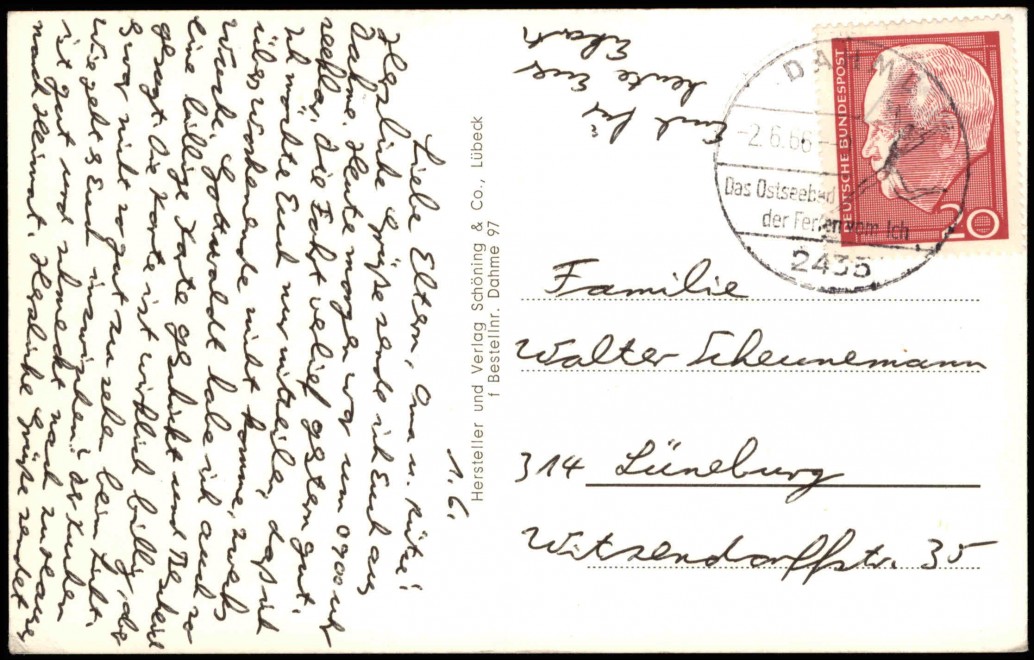 1.6.
Liebe Eltern, Oma u.
Herzliche Grüße sende ich Euch aus
Dahme. Heute morgen war um 0700 Uhr
wecken, die Fahrt verlief gestern gut.
Ich möchte Euch nur mitteilen, daß ich
übers Wochenende nicht komme, zwecks
Wache. Gottwaldt habe ich auch so
eine billige Karte geschickt und
gesagt die Karte ist wirklich billig,
war nicht so gut zu sehen beim Licht.
Wie geht's Euch inzwischen? der Kuchen
ist gut und schmeckt nach zuhause
nach Heimat. Herzliche Grüße sendet
Euch für
heute Euer
Eckart
Hersteller und Verlag Schöning & Co., Lübeck
f Bestellnr. Dahme 97
DAHME
-2.6.66-
Das Ostseebad
der Ferien vom Ich
2435
DEUTSCHE BUNDESPOST
20
Familie
Walter Scheunemann
314 Lüneburg
Witzendorffstr. 35